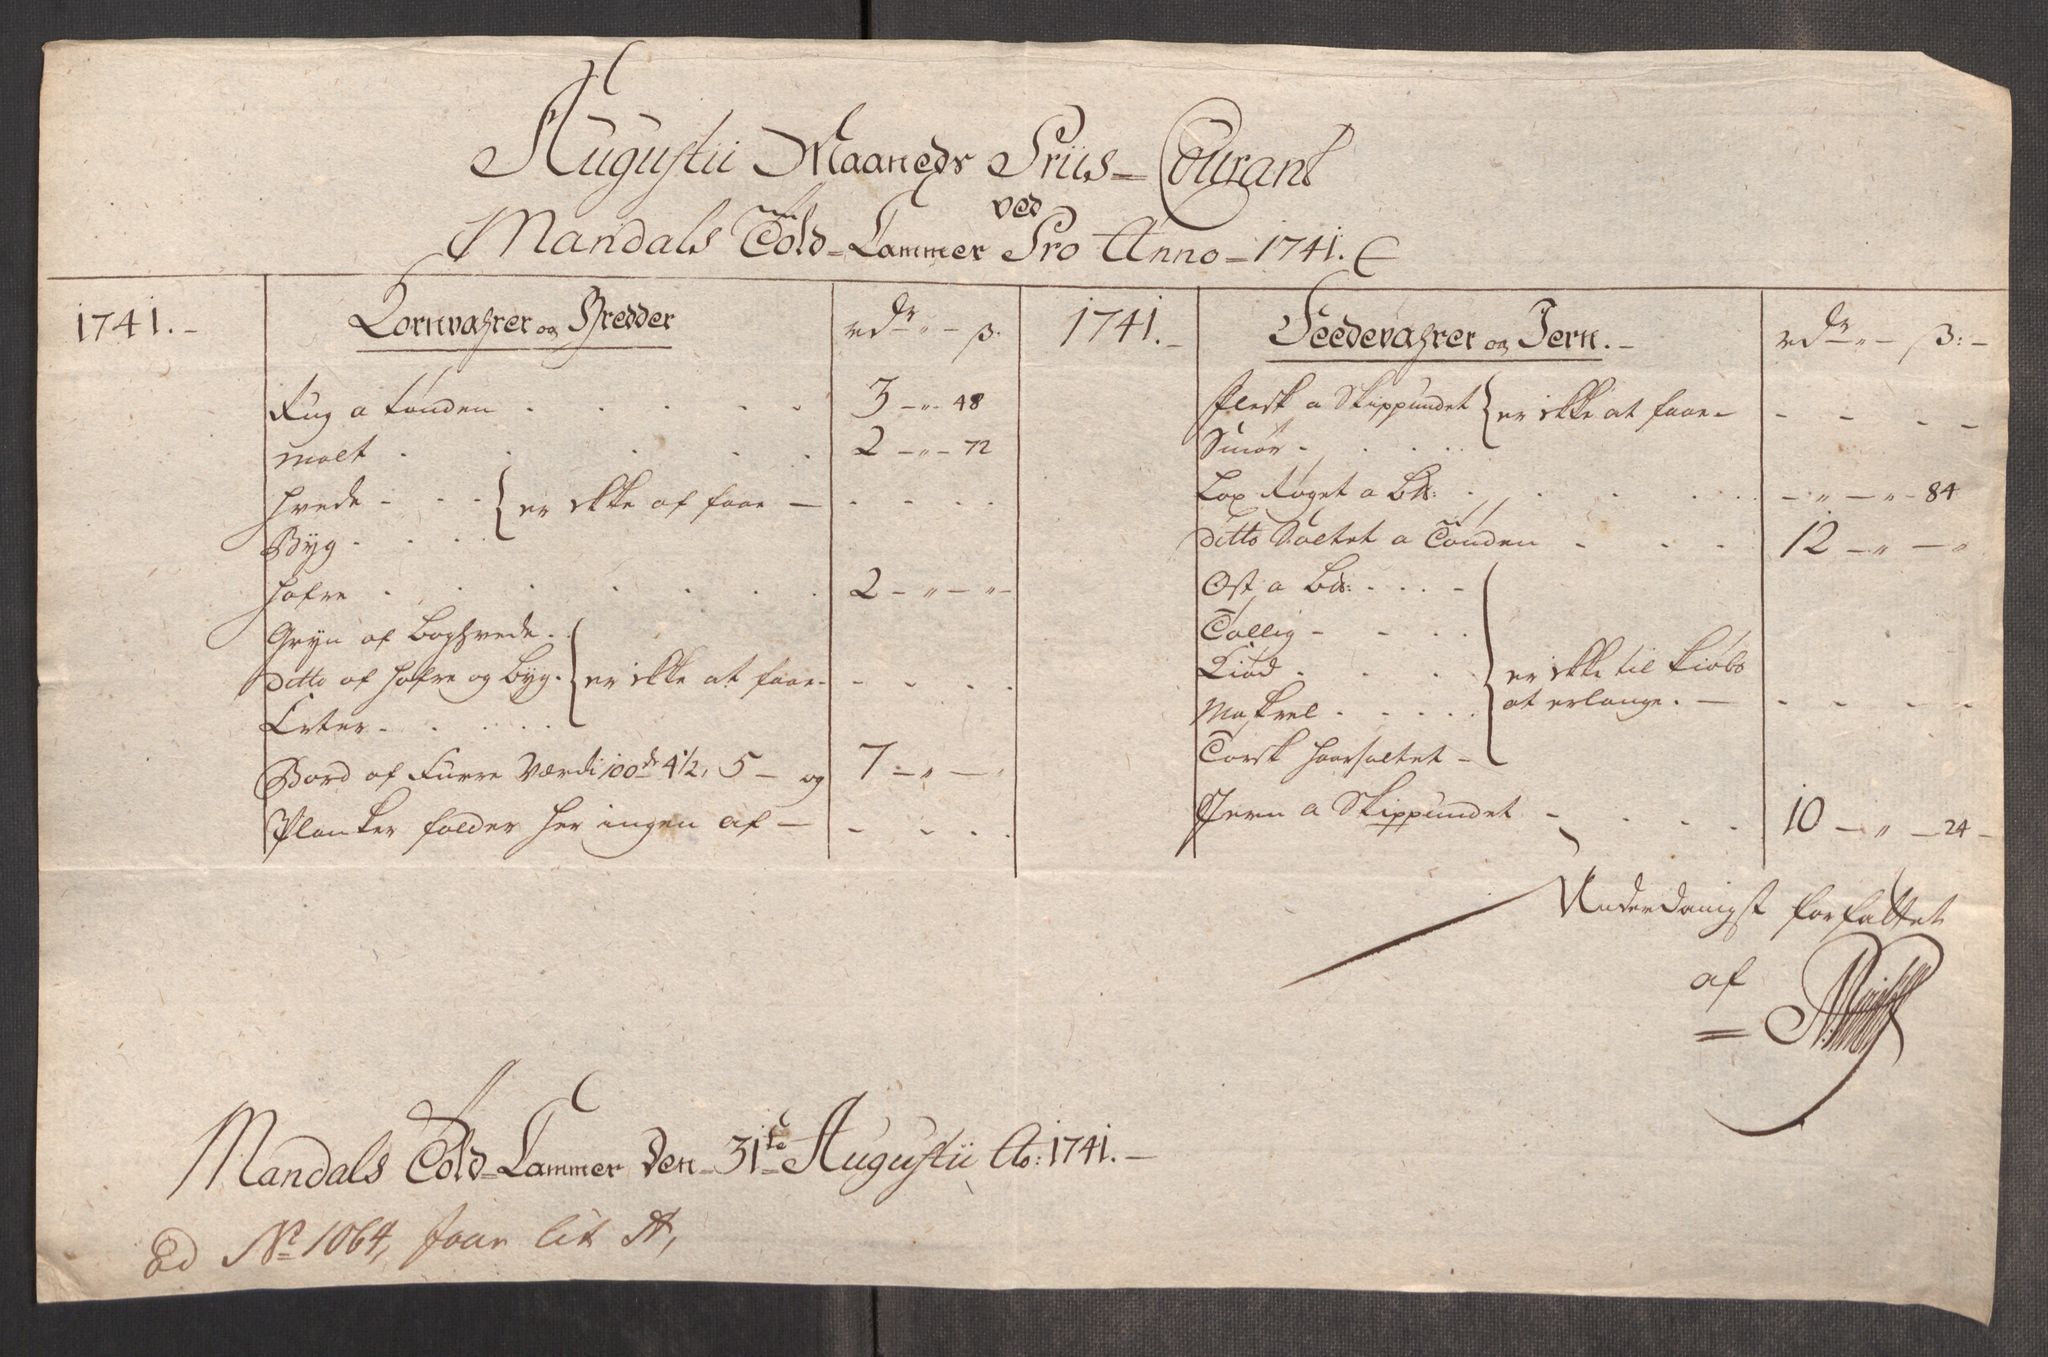 Augustii Maaneds Priis-Courant
ved
Mandals Told-Cammer Pro Anno-1741.
1741.-
Kornvahrer og Bredder
rdr " - ß.
Rug a tønden . . . . . 3 -"- 48
malt . . . . . 2 -"- 72
Hvede - - - { er ikke at faae - - - - -
Byg - . . .
Hafre . . . . . . . 2 -"-"-
Gryn af Boghvede . .
ditto af Hafre og Byg . { er ikke at faae - - - . .
Erter - . . . .
Bord af Furre Værdi 100de 4 1/2, 5 - og 7 -"-"
Planker falder her ingen af - - - . .
1741.-
Feedevahrer og Jern.-
rdr " - ß:-
Flesk a Skippundet { er ikke at faae - - - . -
Smør - . . . .
Lax Røget a Lb: . . . . . -"-"- 84
ditto Saltet a Tønden - . . 12 -"-"
Ost a Lb: . . . -
Tallig - - . .
Kiød . . . . { er ikke til kiøbs
Makrel . . . . . at erlange. - - - . .
Torsk haarsaltet -
Jern a Skippundet - . . . . 10 -"- 24 -
Underdanigst forfattet
af
Mandals Told-Cammer den 31te Augustii Ao: 1741.-
Ed No 1064, faar lit A,